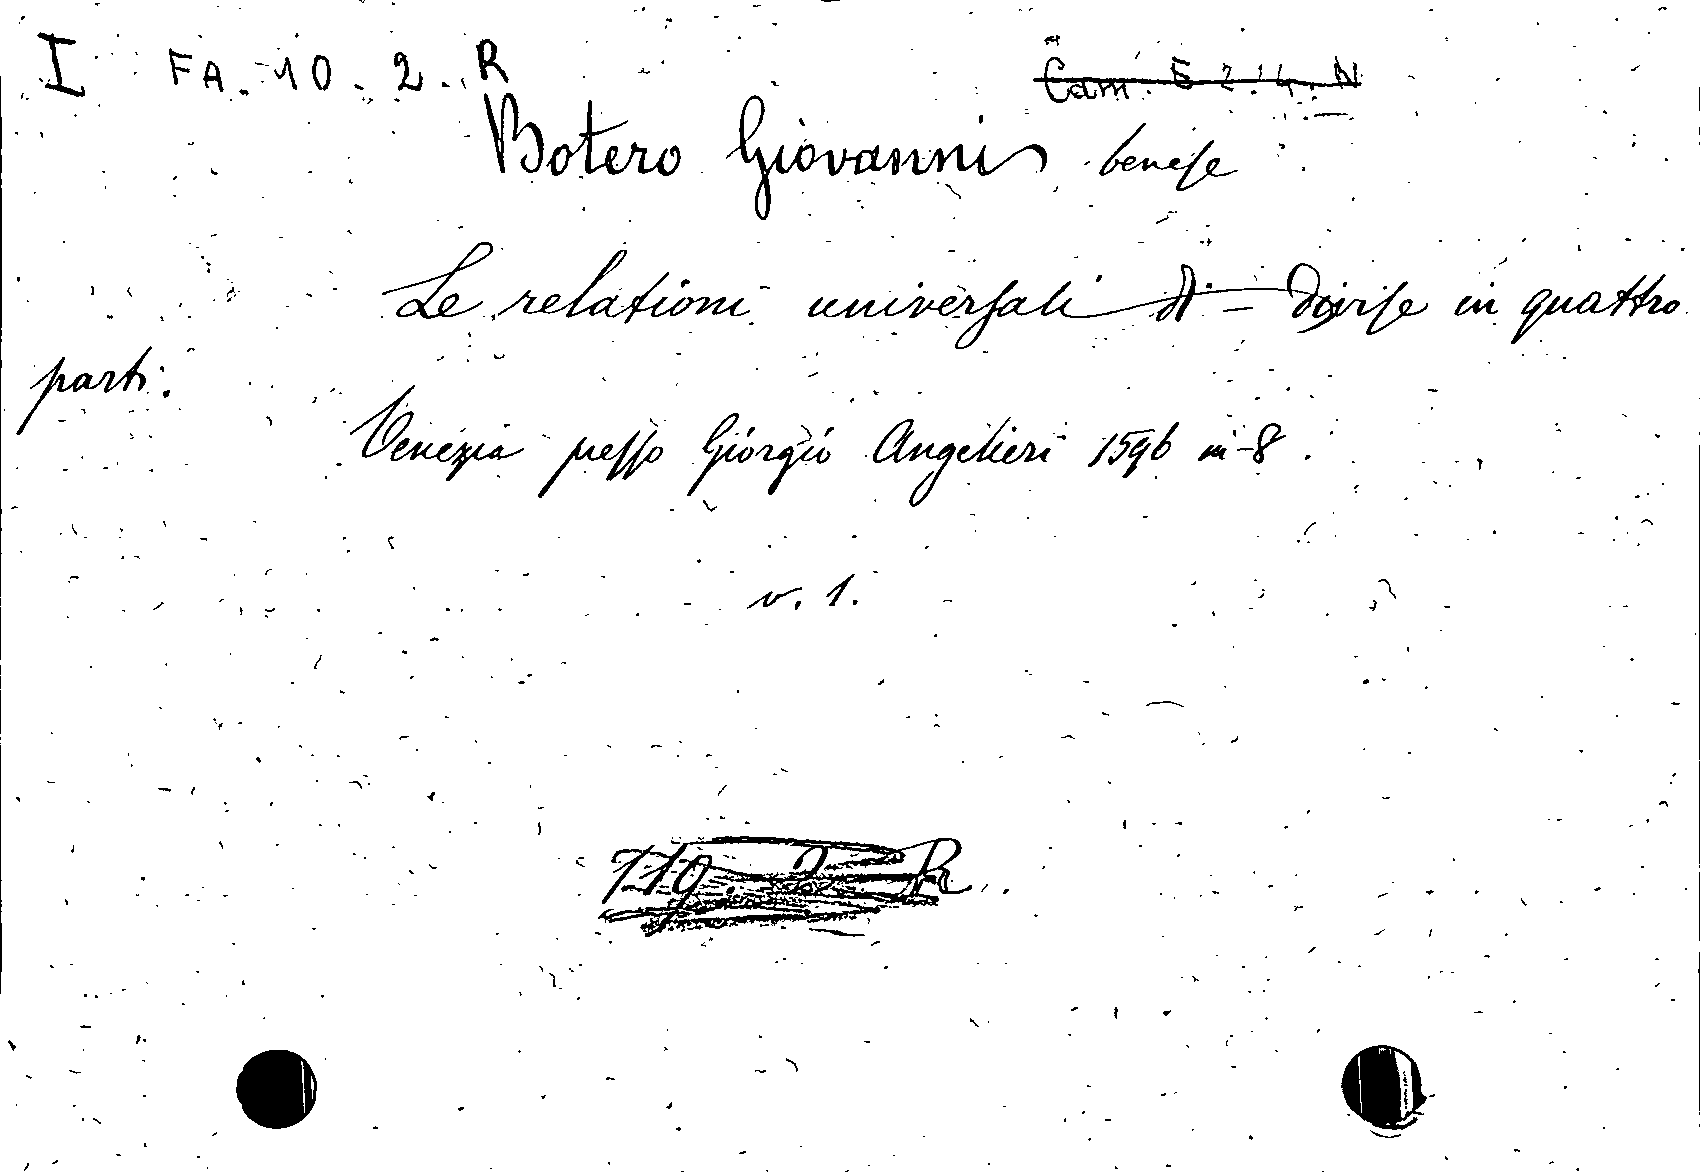 I FA. 10. 2. R Cam. E 2. 4. N
Botero Giovanni benese
Le relationi universali di – divise in quattro
parti.
Venezia presso Giorgio Angelieri 1596 in-8.
v. 1.
119. 2 R